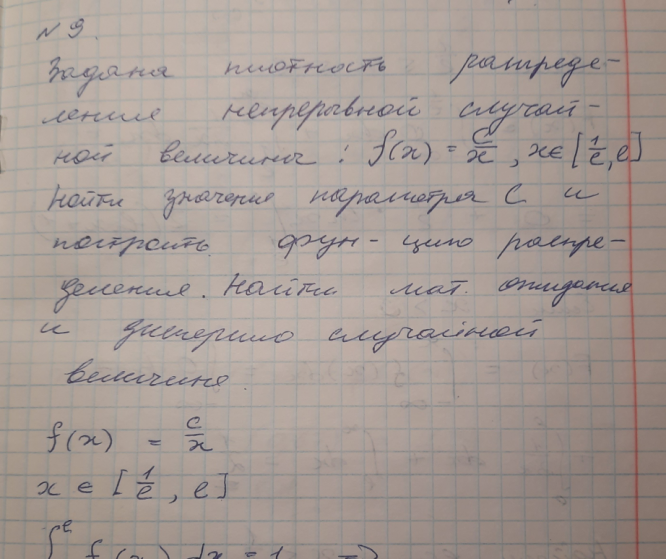 № 9.
Задана плотность распреде-
ления непрерывной случай-
ной величины : f(x) = c/x , x ∈ [1/e, e]
Найти значение параметра C и
построить фун - цию распре-
деления. Найти мат. ожидания
и дисперсию случайной
величине.
f(x) = c/x
x ∈ [1/e , e]
∫^e f(x) dx = 1